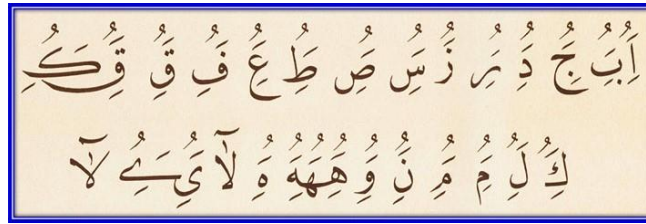 اَِبَُ جَُِ دَُِ رَُِ زَُ سَُِ صَُِ طَُِ عَُِ فَُِ قَُِ قَُِ كَُِ
كَُِ لَُِ مَُِ مَُِ نَُِ وَُِ هَُهَُهَُِ هَُ لآ يَُِ يَُِ لآ